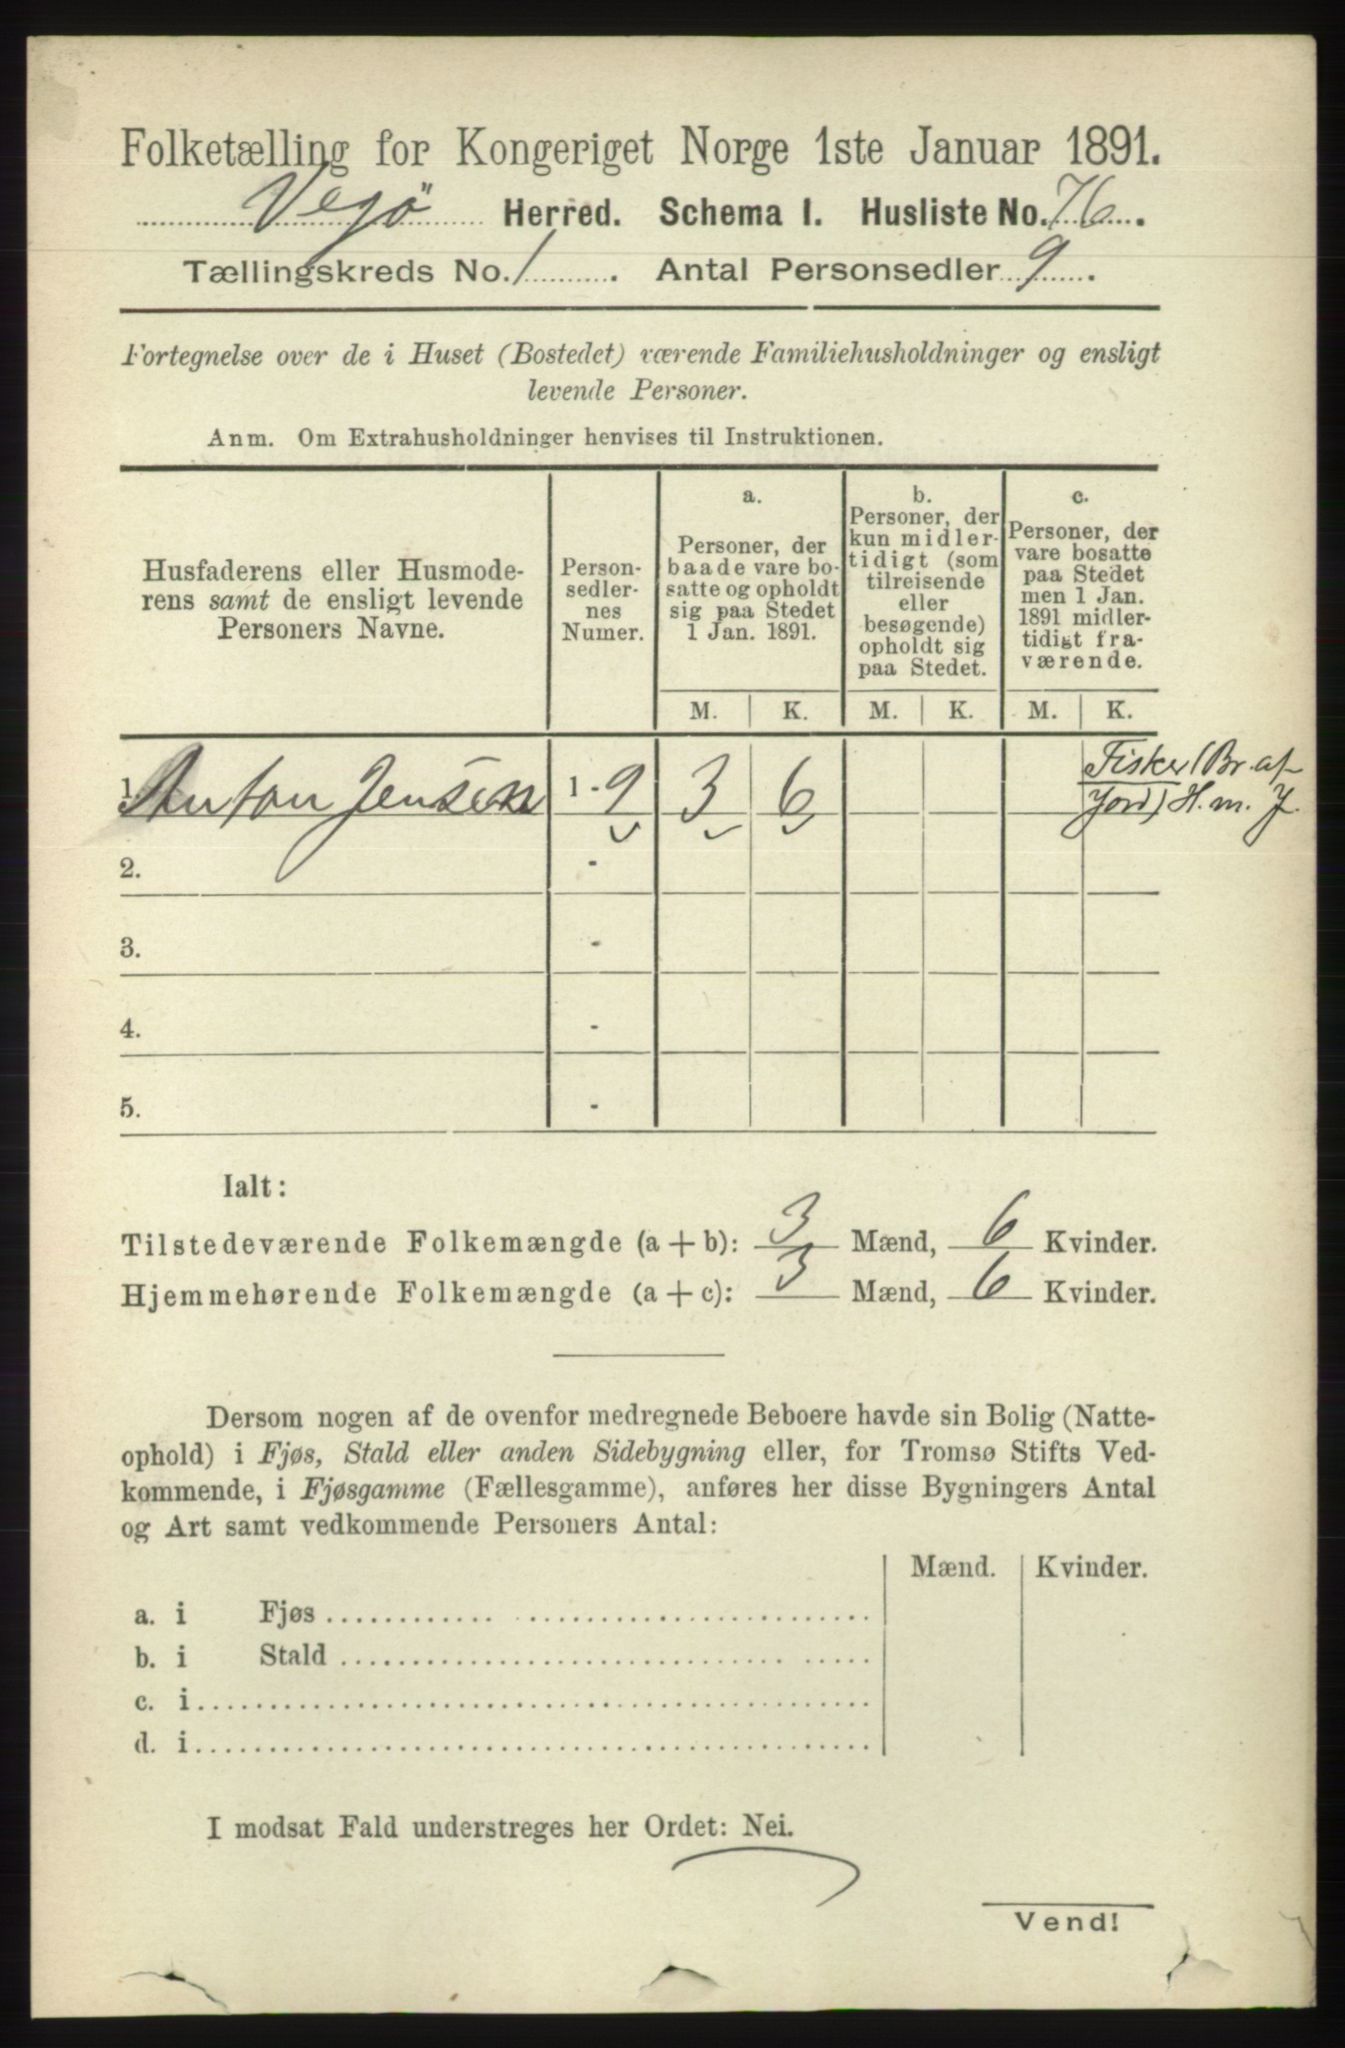 Folketælling for Kongeriget Norge 1ste Januar 1891.
Vegö Herred. Schema I. Husliste No. 76.
Tællingskreds No. 1. Antal Personsedler 9.
Fortegnelse over de i Huset (Bostedet) værende Familiehusholdninger og ensligt
levende Personer.
Anm. Om Extrahusholdninger henvises til Instruktionen.
Husfaderens eller Husmode-
rens samt de ensligt levende
Personers Navne.
Person-
sedler-
nes
Numer.
a.
Personer, der
baade vare bo-
satte og opholdt
sig paa Stedet
1 Jan. 1891.
b.
Personer, der
kun midler-
tidigt (som
tilreisende
eller
besøgende)
opholdt sig
paa Stedet.
c.
Personer, der
vare bosatte
paa Stedet
men 1 Jan.
1891 midler-
tidigt fra-
værende.
M. K. M. K. M. K.
1. Anton Jensen 1 - 9 3 6
Fisker (Br. af
Jord) H. m. J.
2. -
3. -
4. -
5. -
Ialt:
Tilstedeværende Folkemængde (a + b): 3 Mænd, 6 Kvinder.
Hjemmehørende Folkemængde (a + c): 3 Mænd, 6 Kvinder.
Dersom nogen af de ovenfor medregnede Beboere havde sin Bolig (Natte-
ophold) i Fjøs, Stald eller anden Sidebygning eller, for Tromsø Stifts Ved-
kommende, i Fjøsgamme (Fællesgamme), anføres her disse Bygningers Antal
og Art samt vedkommende Personers Antal:
Mænd. Kvinder.
a. i Fjøs
b. i Stald
c. i
d. i
I modsat Fald understreges her Ordet: Nei.
Vend!